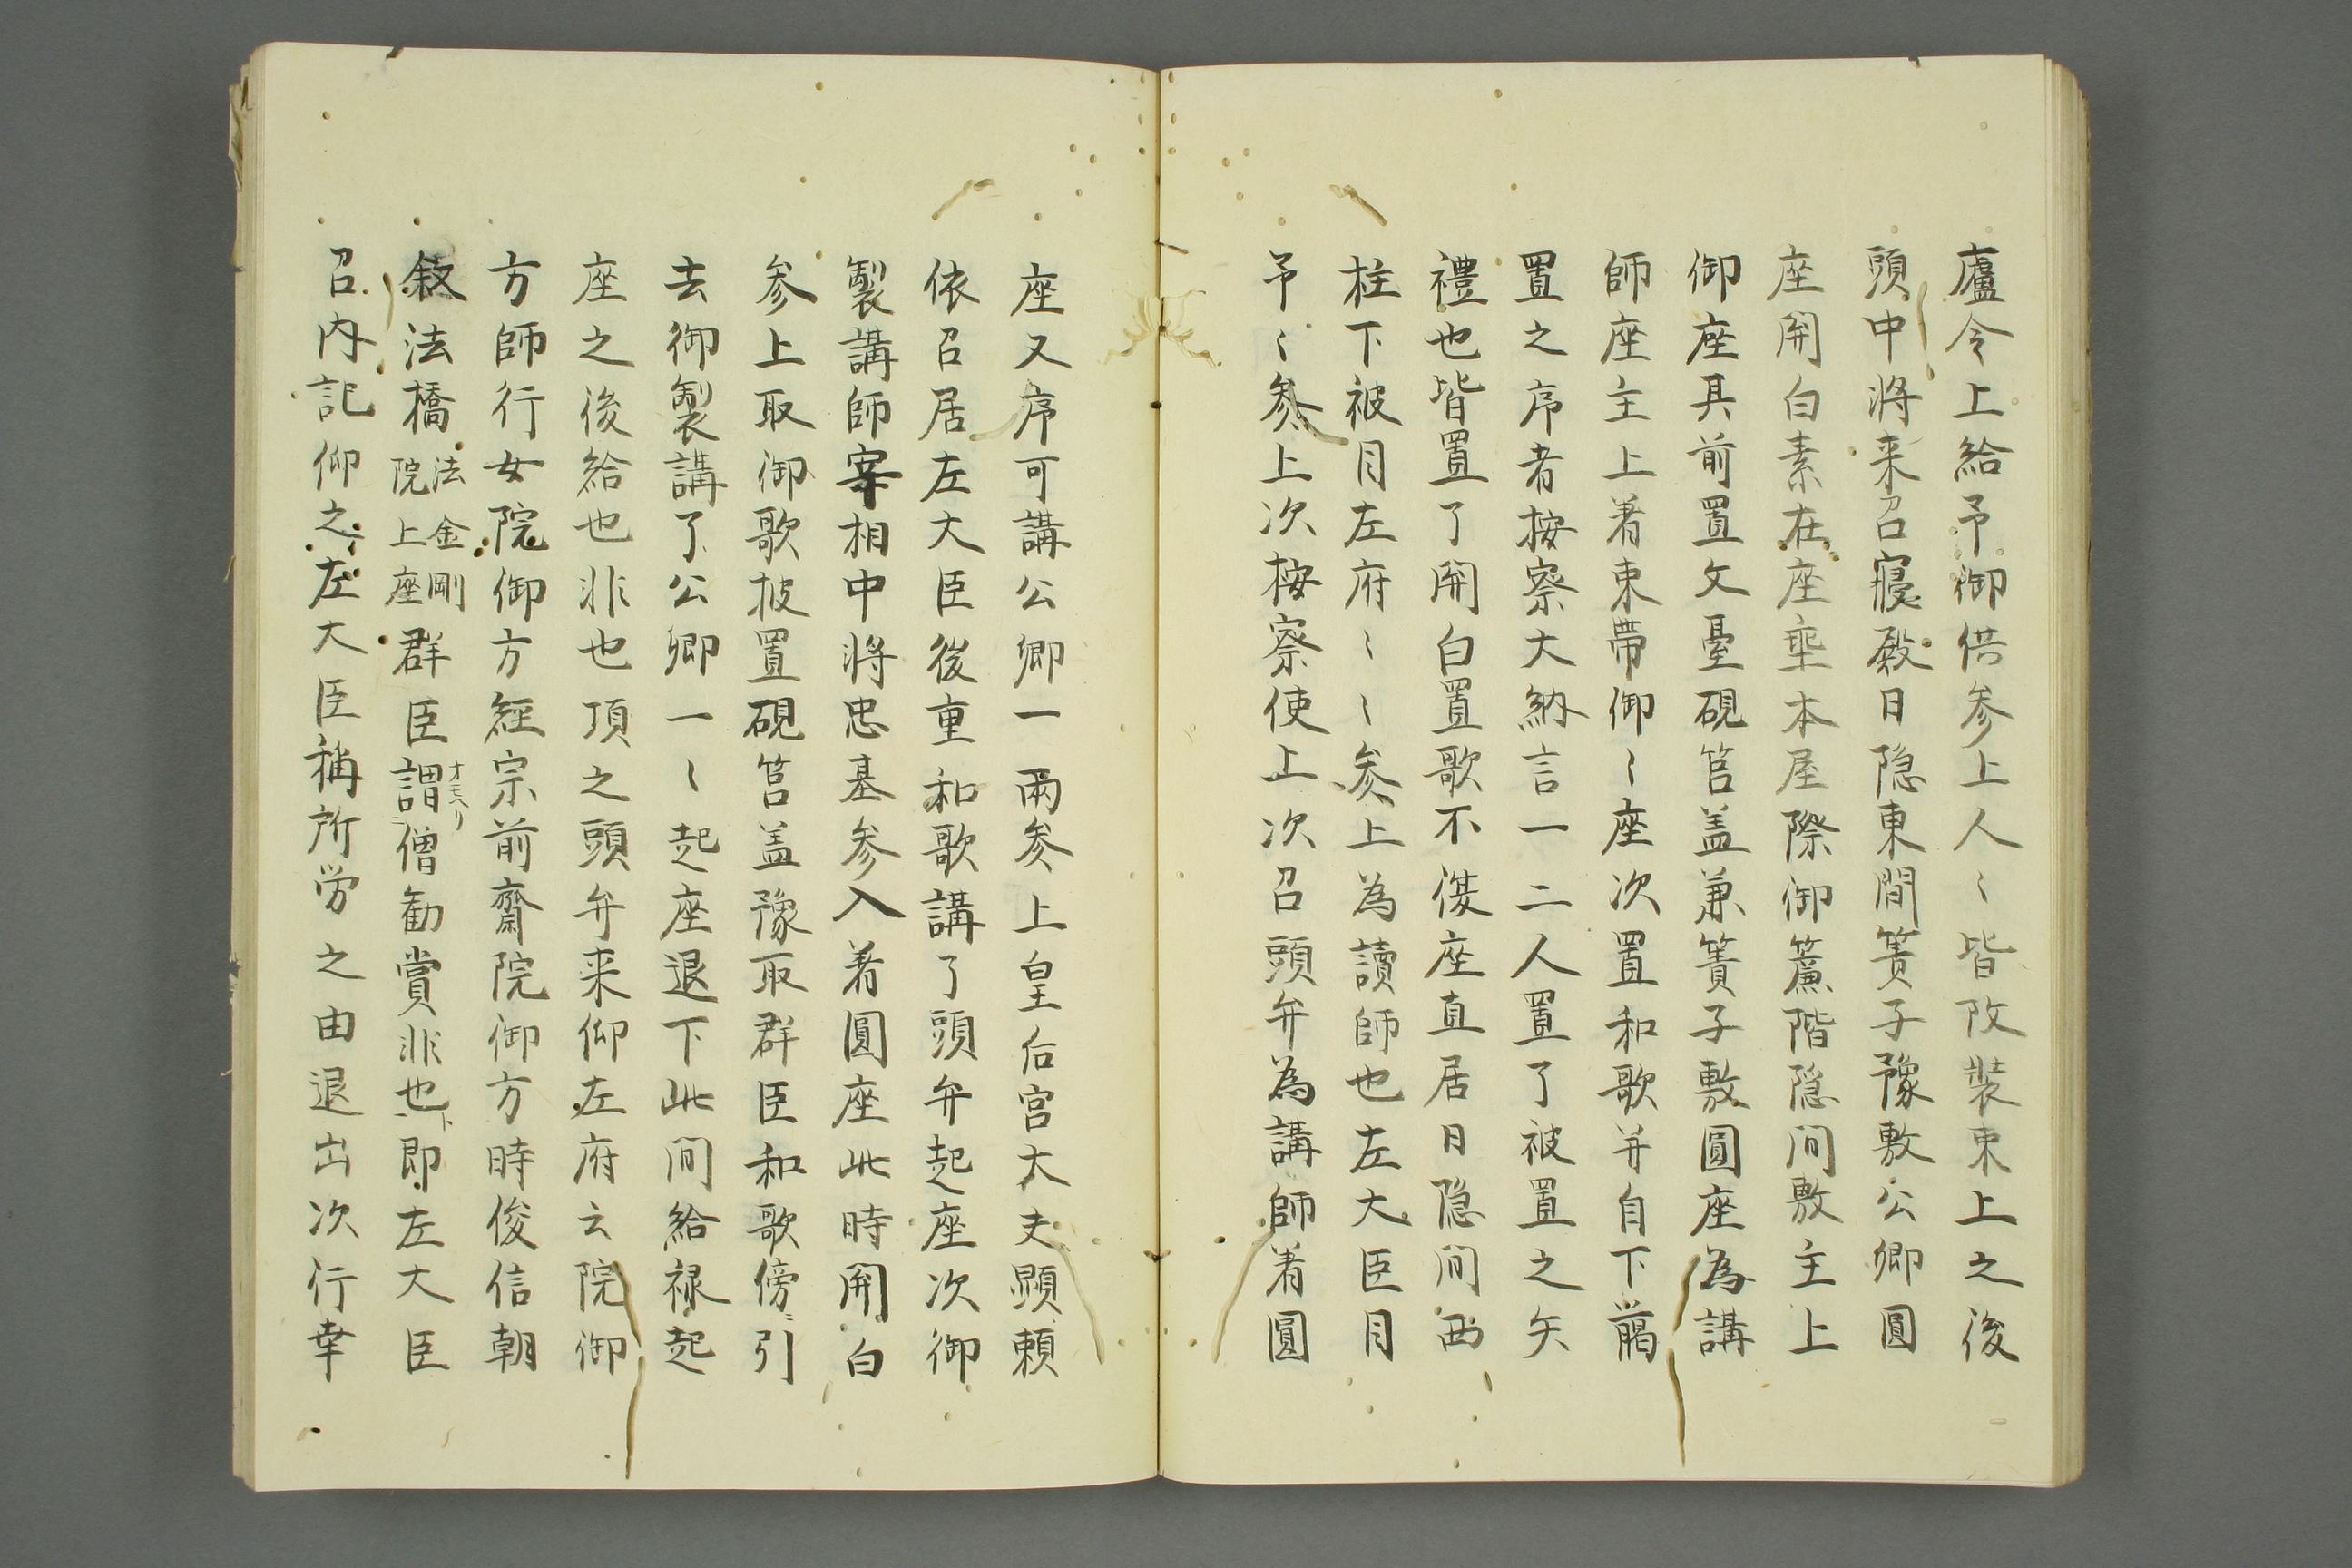 廬令上給予御供参上人〻皆改装束上之後
頭中将来召寝殿日隠東間簀子豫敷公卿圓
座関白素在座垂本屋際御簾階隠间敷主上
御座其前置文臺硯筥盖兼簀子敷圓座為講
師座主上着束帯御〻座次置和歌并自下﨟
置之序者按察大納言一二人置了被置之矢
禮也皆置了関白置歌不復座直居日隠间西
柱下被目左府〻〻参上為讀師也左大臣目
予〻参上次按察使上次召頭弁為講師着圓
座又序可講公卿一兩参上皇后宮太夫顕頼
依召居左大臣後重和歌講了頭弁起座次御
製講師宰相中将忠基参入着圓座此時関白
参上取御歌披置硯筥盖豫取群臣和歌傍引
去御製講了公卿一〻起座退下此间給禄起
座之後給也非也頂之頭弁来仰左府云院御
方師行女院御方経宗前齋院御方時俊信朝
叙法橋法金剛院上座群臣謂オモヘリ僧勧賞非也下即左大臣
召内記仰之左大臣稱所労之由退出次行幸